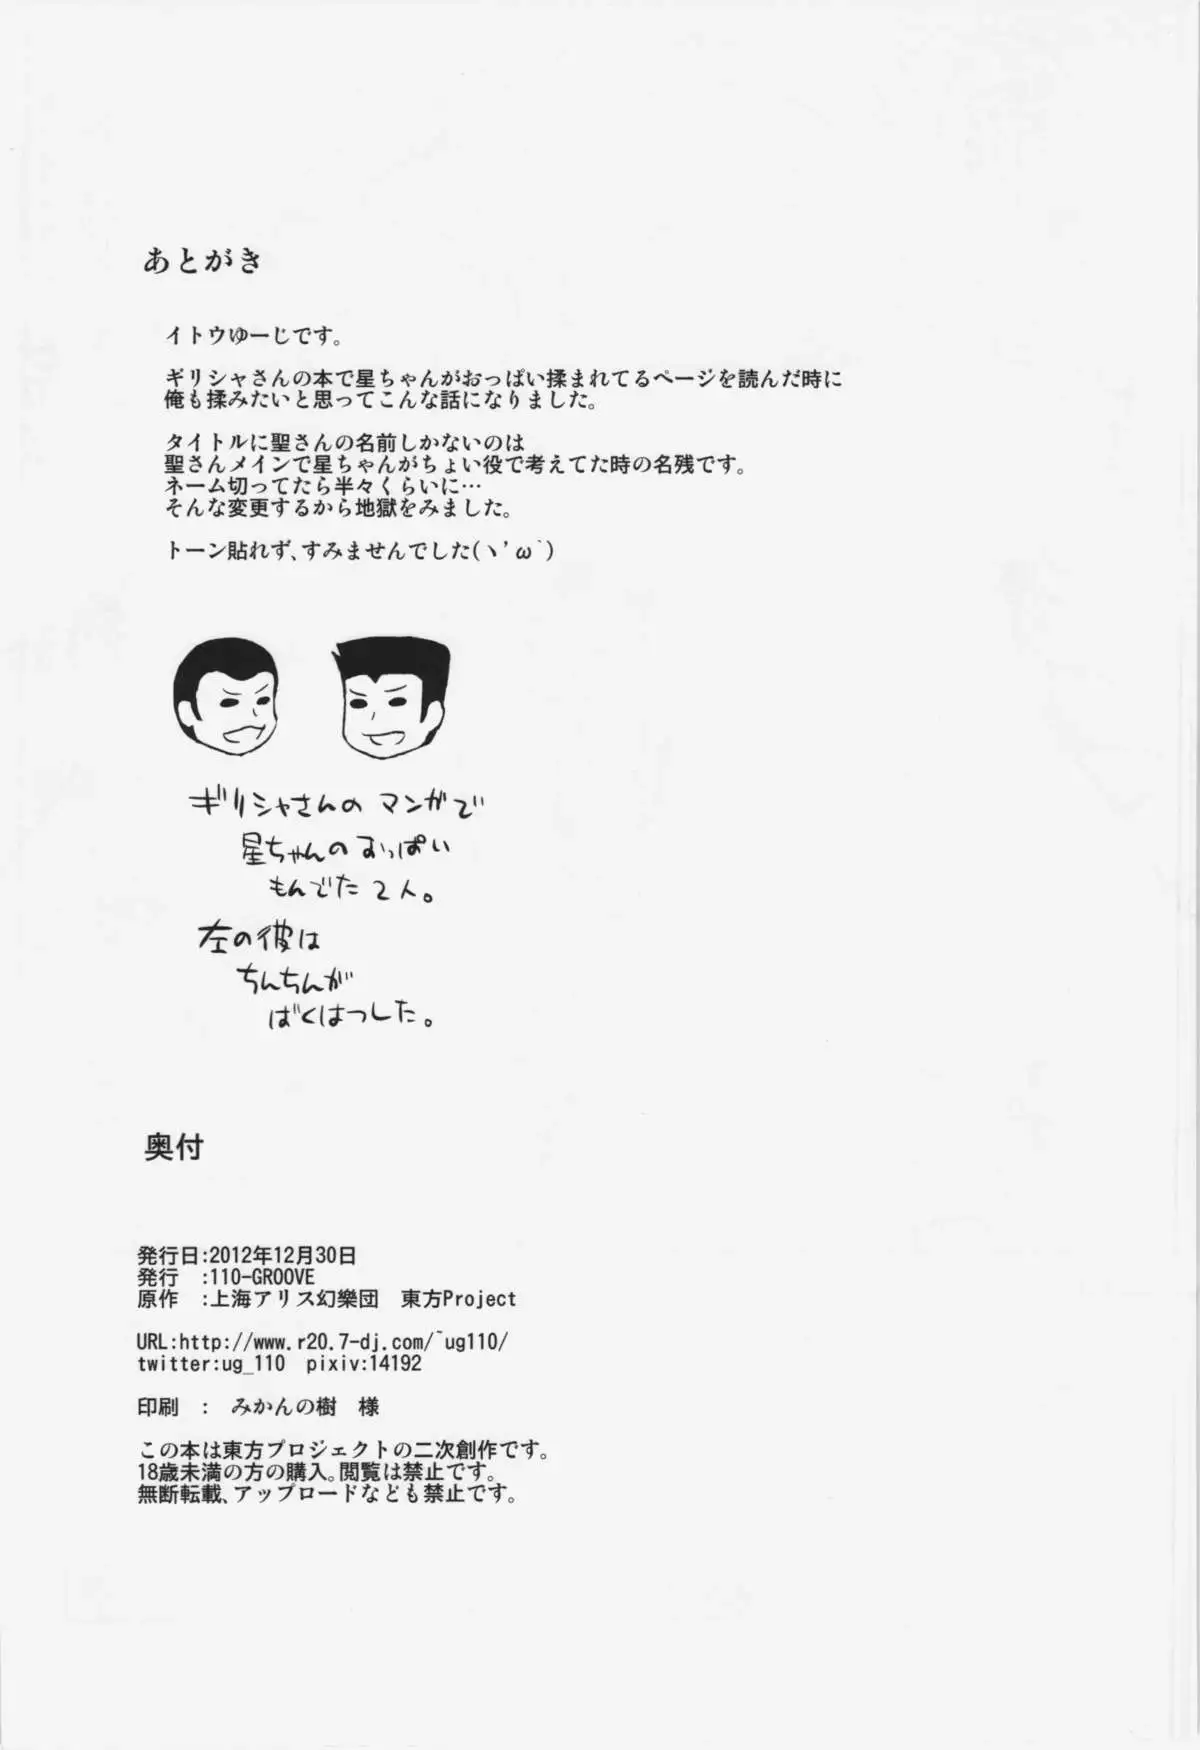 あとがき
イトウゆーじです。
ギリシャさんの本で星ちゃんがおっぱい揉まれてるページを読んだ時に
俺も揉みたいと思ってこんな話になりました。
タイトルに聖さんの名前しかないのは
聖さんメインで星ちゃんがちょい役で考えてた時の名残です。
ネーム切ってたら半々くらいに…
そんな変更するから地獄をみました。
トーン貼れず、すみませんでした(ヽ'ω`)
ギリシャさんの マンガで
星ちゃんの おっぱい
もんでた 2人。
左の彼は
ちんちんが
ばくはつした。
奥付
発行日:2012年12月30日
発行　:110-GROOVE
原作　:上海アリス幻樂団　東方Project
URL:http://www.r20.7-dj.com/~ug110/
twitter:ug_110　pixiv:14192
印刷　:　みかんの樹　様
この本は東方プロジェクトの二次創作です。
18歳未満の方の購入。閲覧は禁止です。
無断転載、アップロードなども禁止です。